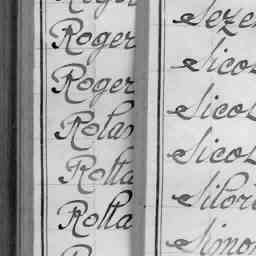 Roger
Roger
Roger
Rolan
Rolla
Rolla
Sezer
Sicol
Sicol
Sicol
Silori
Simon